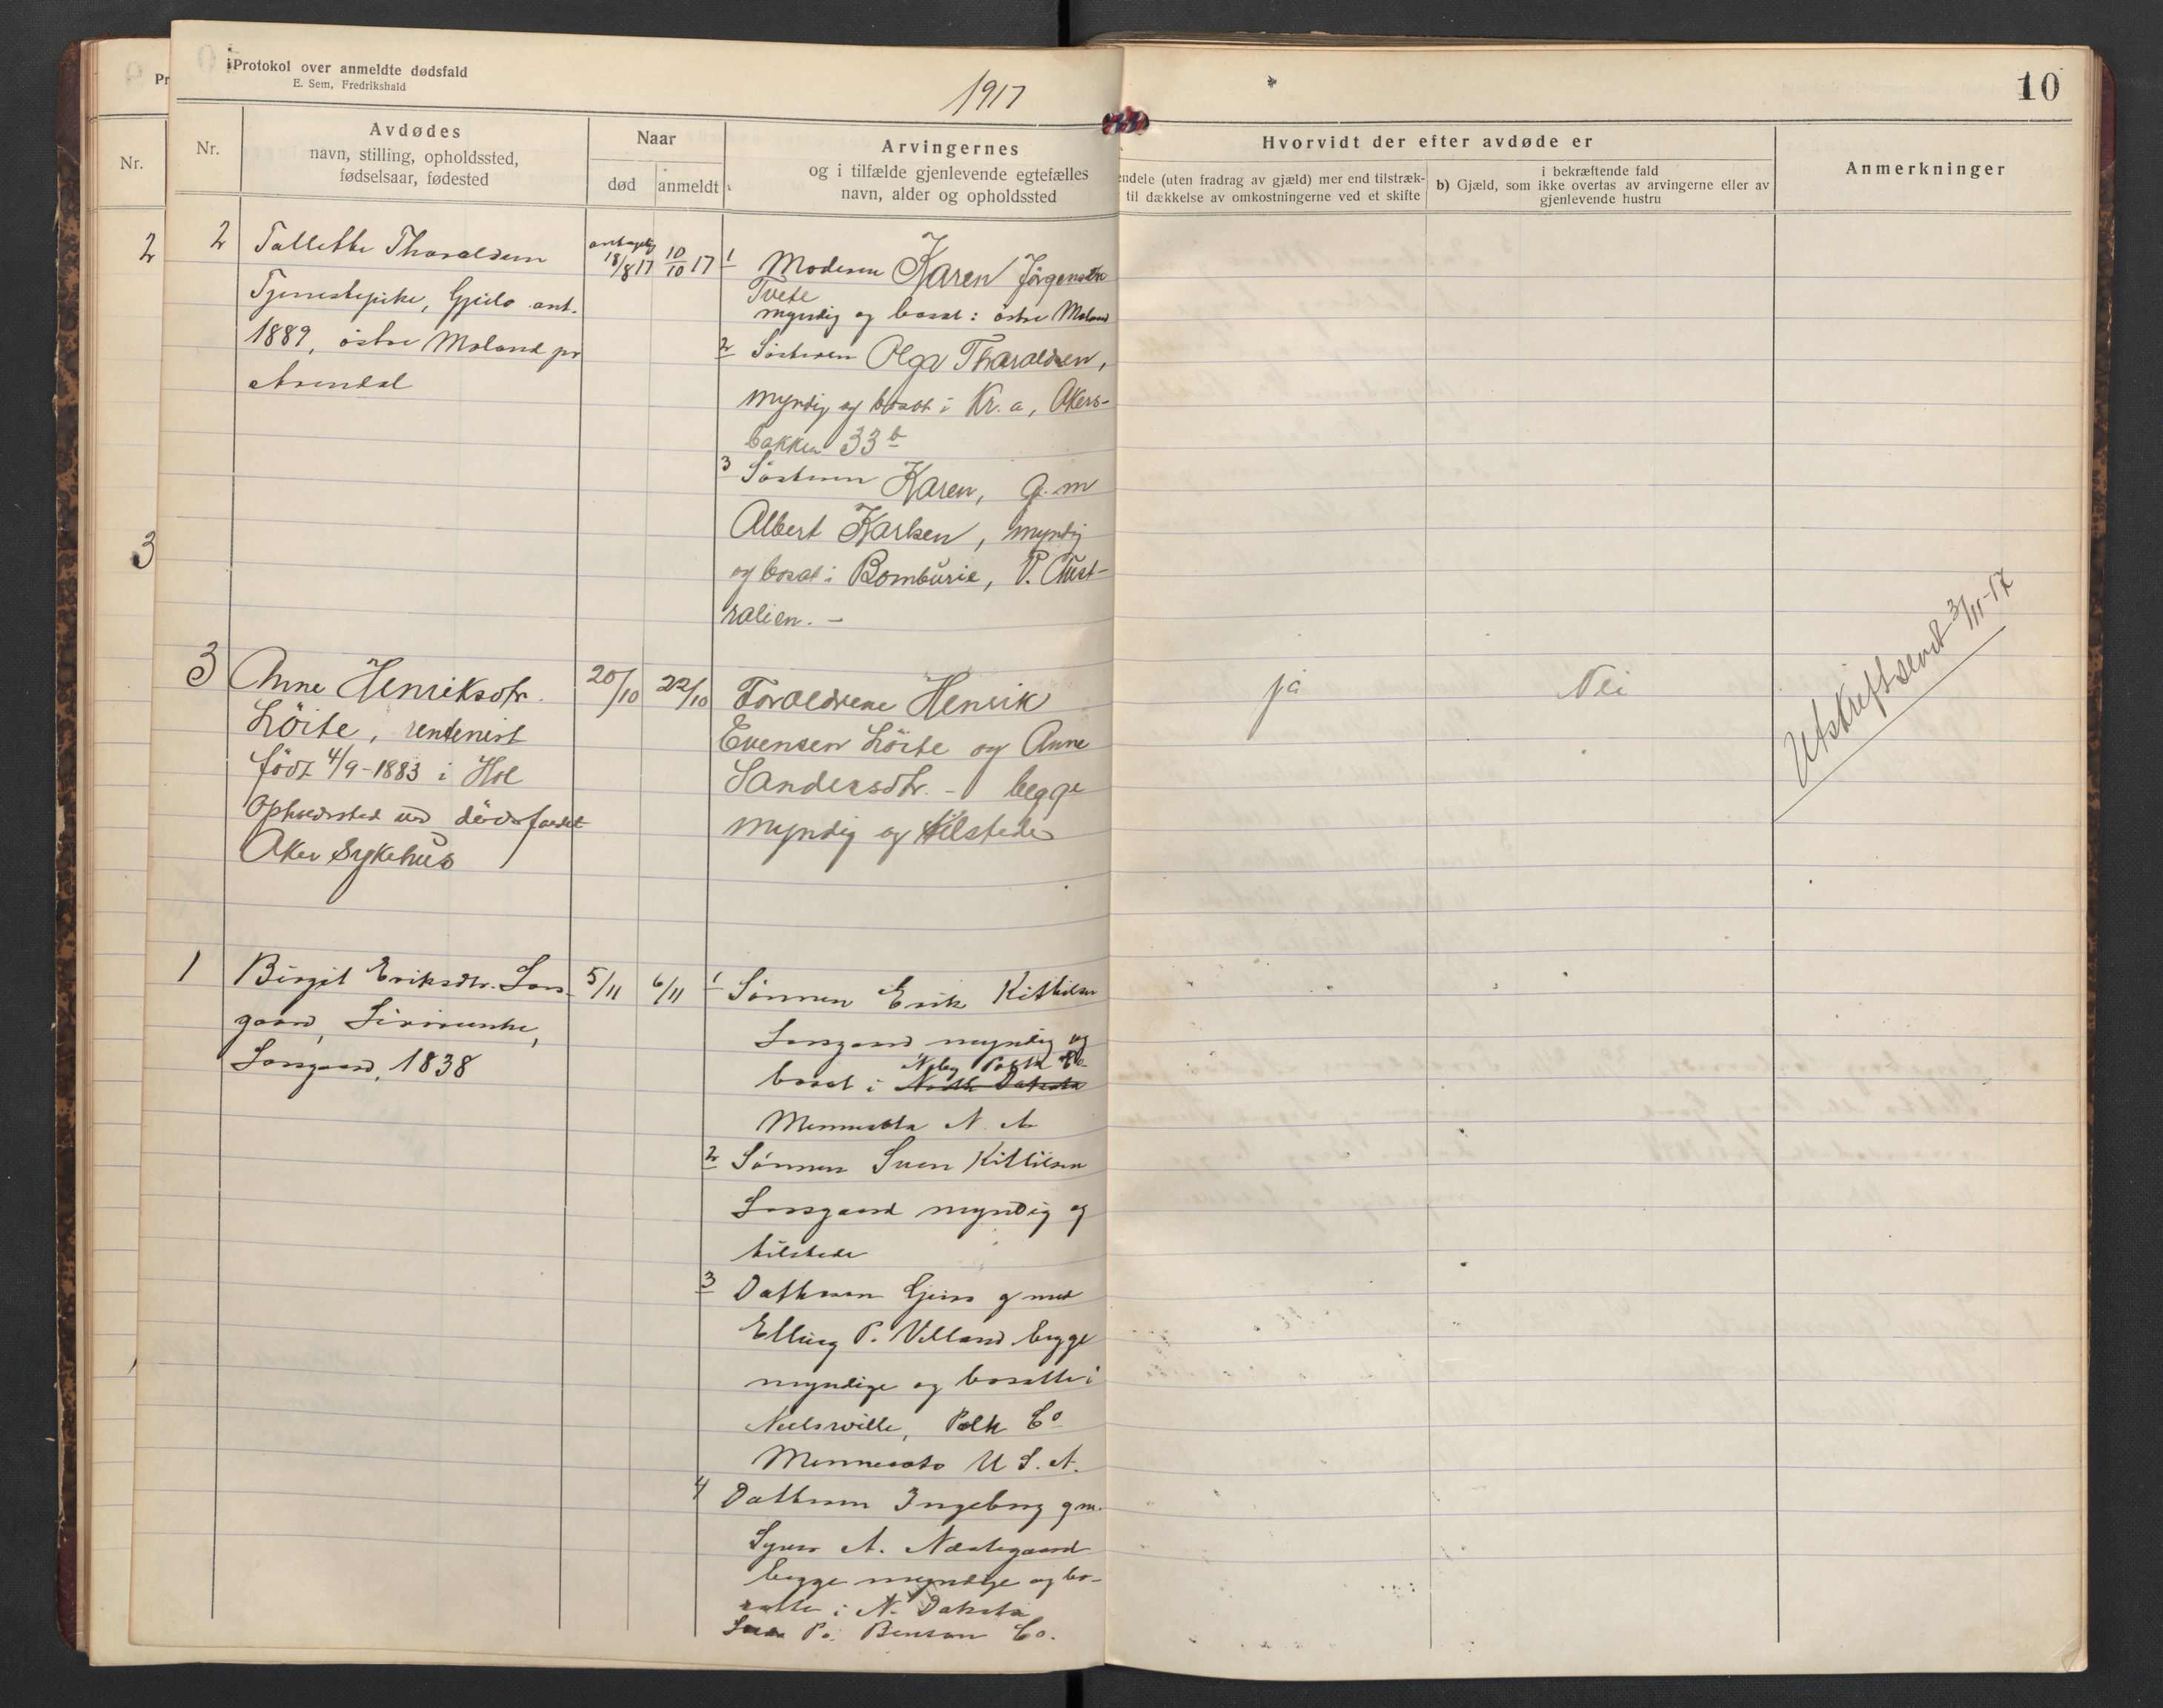 Protokol over anmeldte dødsfald
E. Sem, Fredrikshald
1917
10
Pr
Nr.
Nr.
Avdødes
navn, stilling, opholdssted,
fødselsaar, fødested
Naar
død
anmeldt
Arvingernes
og i tilfælde gjenlevende egtefælles
navn, alder og opholdssted
Hvorvidt der efter avdøde er
endele (uten fradrag av gjæld) mer end tilstræk-
til dækkelse av omkostningerne ved et skifte
i bekræftende fald
b) Gjæld, som ikke overtas av arvingerne eller av
gjenlevende hustru
Anmerkninger
2
3
2
Tallette Tharaldsen
Tjenestepike, Gjeilo ant.
1889, østre Moland pr
Arendal
antagelig
18/8 17
10/10 17
1 Moderen Karen Jørgensen
Tvete
myndig og bosat i østre Moland
2 Søsteren Olga Tharaldsen,
myndig og bosat i Kr.a, Akers-
bakken 33 b
3 Søsteren Karen, g. m
Albert Karlsen, myndig
og bosat i Bomburie, P. Aust-
ralien. -
3
Anne Henriksdtr.
Löite, rentenist
født 4/9-1883 i Hol
Opholdssted ved dødsfaldet
Aker Sykehus
20/10
22/10
Forældrene Henrik
Evensen Löite og Anne
Sandersdtr. - begge
myndig og tilstede
ja
Nei
Utskrift sendt 3/11-17
1
Birgit Eriksdtr. Lars-
gaard,
Larsgaard, 1838
5/11
6/11
1 Sønnen Erik Kittilsen
Larsgaard myndig og
Polk Co
bosat i North Dakota
Minnesota N. A
2 Sønnen Sven Kittilsen
Larsgaard myndig og
tilstede
3 Datteren Guro g med
Elling P. Villand begge
myndige og bosatte i
Neilsville, Polk Co
Minnesota U S. A.
4 Datteren Ingeborg g m.
Syver A. Næstegaard
begge myndige og bo-
satte i N. Dakota
Po. Benson Co.